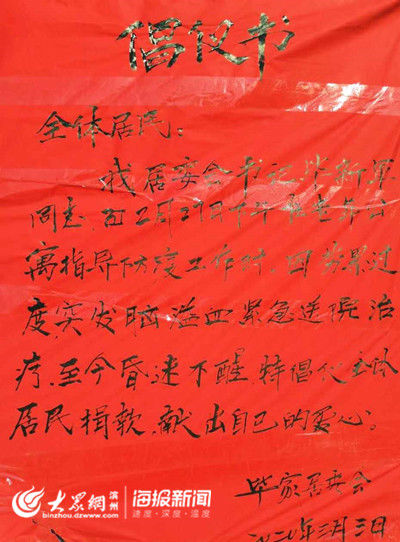 倡议书
全体居民:
我居委会书记毕新军
同志,在2月29日下午在
寓指导防疫工作时,因劳累过
度,突发脑溢血紧急送院治
疗,至今昏迷不醒,特倡仪全体
居民捐款,献出自己的爱心。
毕家居委会
二〇二〇年三月三日
大众网 滨州
binzhou.dzwww.com
海报新闻
速度·深度·温度